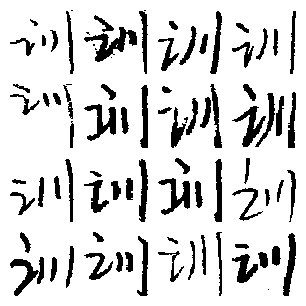 训训训训
训训训训
训训训训
训训训训